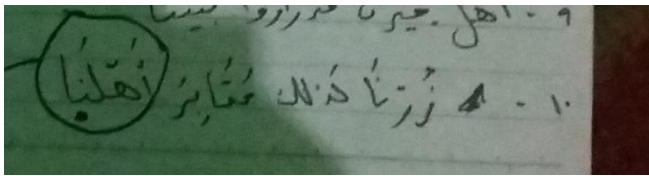 ٩ - أهل جيرتنا قد زاروا بيتنا
١٠ - زُرْنَا كَذلك مَقَابِرَ أَهْلِنَا